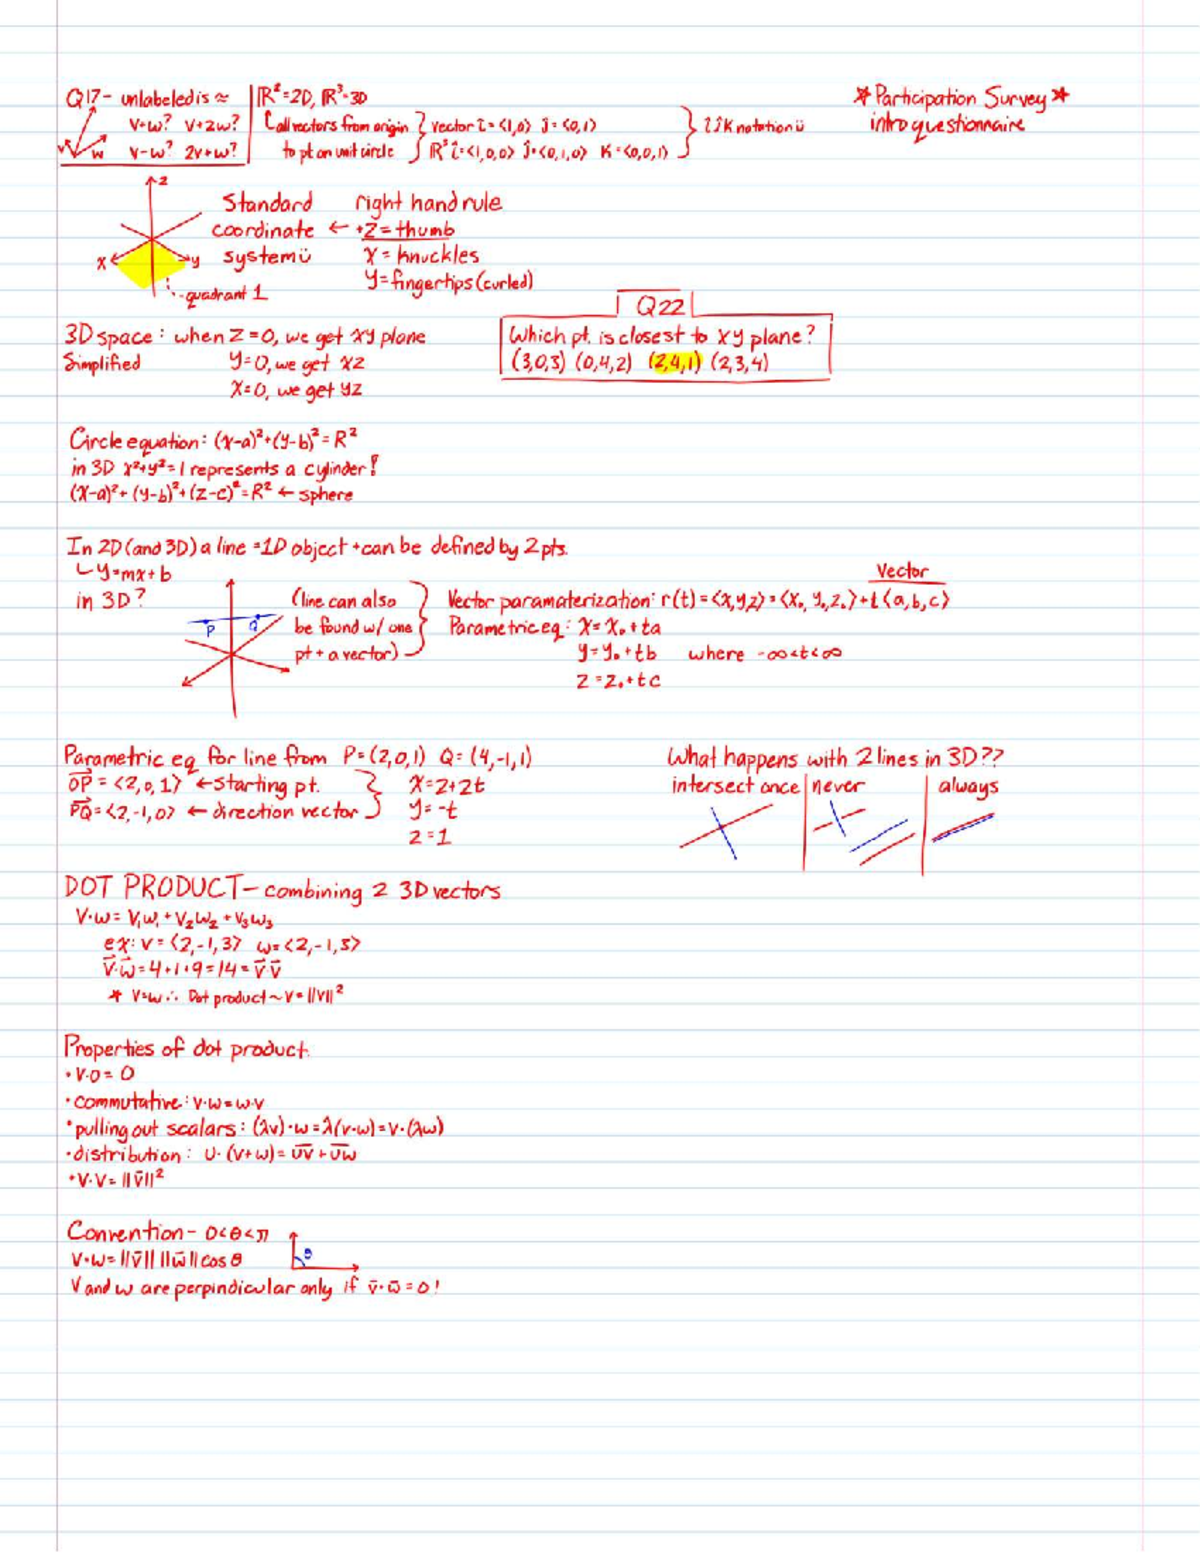 Q17- unlabeled is ≈
V+w? V+2w?
V-w? 2V+w?
w
ℝ²=2D, ℝ³=3D
all vectors from origin to pt on unit circle
vector î=<1,0> ĵ=<0,1>
ℝ³ î=<1,0,0> ĵ=<0,1,0> K=<0,0,1>
îĵK notation ü
*Participation Survey*
intro questionnaire
z
x
y
quadrant 1
Standard
coordinate ←
system ü
right hand rule
+Z=thumb
X=knuckles
Y=fingertips (curled)
3D space: when Z=0, we get xy plane
Simplified y=0, we get xz
x=0, we get yz
Q22
Which pt. is closest to xy plane?
(3,0,3) (0,4,2) (2,4,1) (2,3,4)
Circle equation: (x-a)²+(y-b)²=R²
in 3D x²+y²=1 represents a cylinder!
(x-a)²+(y-b)²+(z-c)²=R² ← sphere
In 2D (and 3D) a line =1D object + can be defined by 2 pts.
↳ y=mx+b
in 3D?
P Q
(line can also
be found w/ one
pt + a vector)
Vector
Vector paramaterization: r(t)=<x,y,z>=<x₀,y₀,z₀>+t<a,b,c>
Parametric eq: x=x₀+ta
y=y₀+tb where -∞<t<∞
z=z₀+tc
Parametric eq for line from P=(2,0,1) Q=(4,-1,1)
OP=<2,0,1> ← starting pt.
PQ=<2,-1,0> ← direction vector
x=2+2t
y=-t
z=1
What happens with 2 lines in 3D??
intersect once | never | always
DOT PRODUCT- combining 2 3D vectors
V·w=V₁w₁+V₂w₂+V₃w₃
ex: v=<2,-1,3> w=<2,-1,3>
v⃗·w⃗=4+1+9=14=v⃗·v⃗
* V=w ∴ Dot product ~ V=||V||²
Properties of dot product.
• V·0=0
• commutative: v·w=w·v
• pulling out scalars: (λv)·w=λ(v·w)=v·(λw)
• distribution: U·(v+w)=u̅v̅+u̅w̅
• V·V=||v̅||²
Convention- 0<θ<π
V·w=||v̅|| ||w̅|| cos θ
θ
V and w are perpindicular only if v̅·w̅=0!